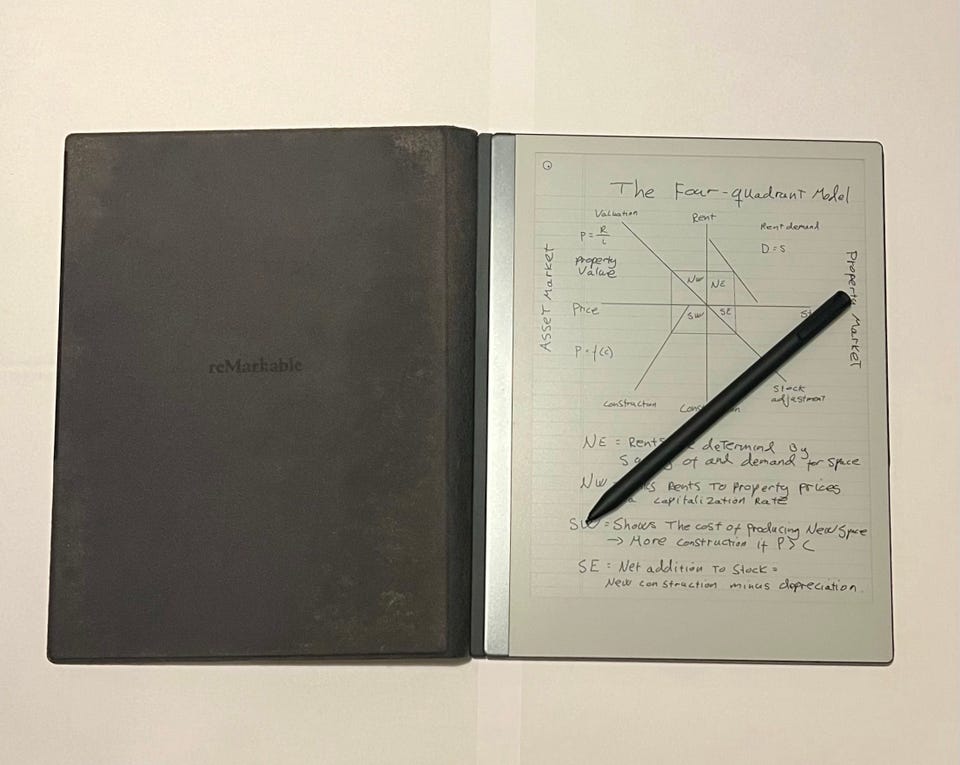 reMarkable
The Four-quadrant Model
Valuation
Rent
Rent demand
P = R/i
D = S
Property
Value
Asset Market
Property Market
NW NE
Price
SW SE
P = f(c)
Construction
Stock
adjustment
NE = Rents determind By
of and demand for Space
NW Rents To Property Prices
capitalization Rate
SW = Shows The cost of producing New Space
→ More construction if P > C
SE = Net addition To Stock =
New construction minus depreciation.